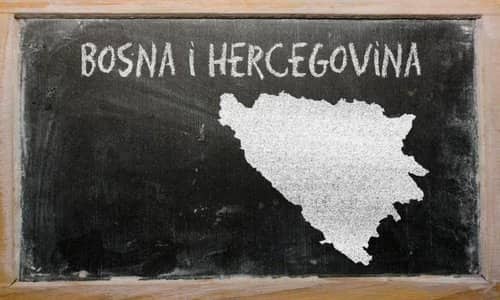 BOSNA i HERCEGOViNA